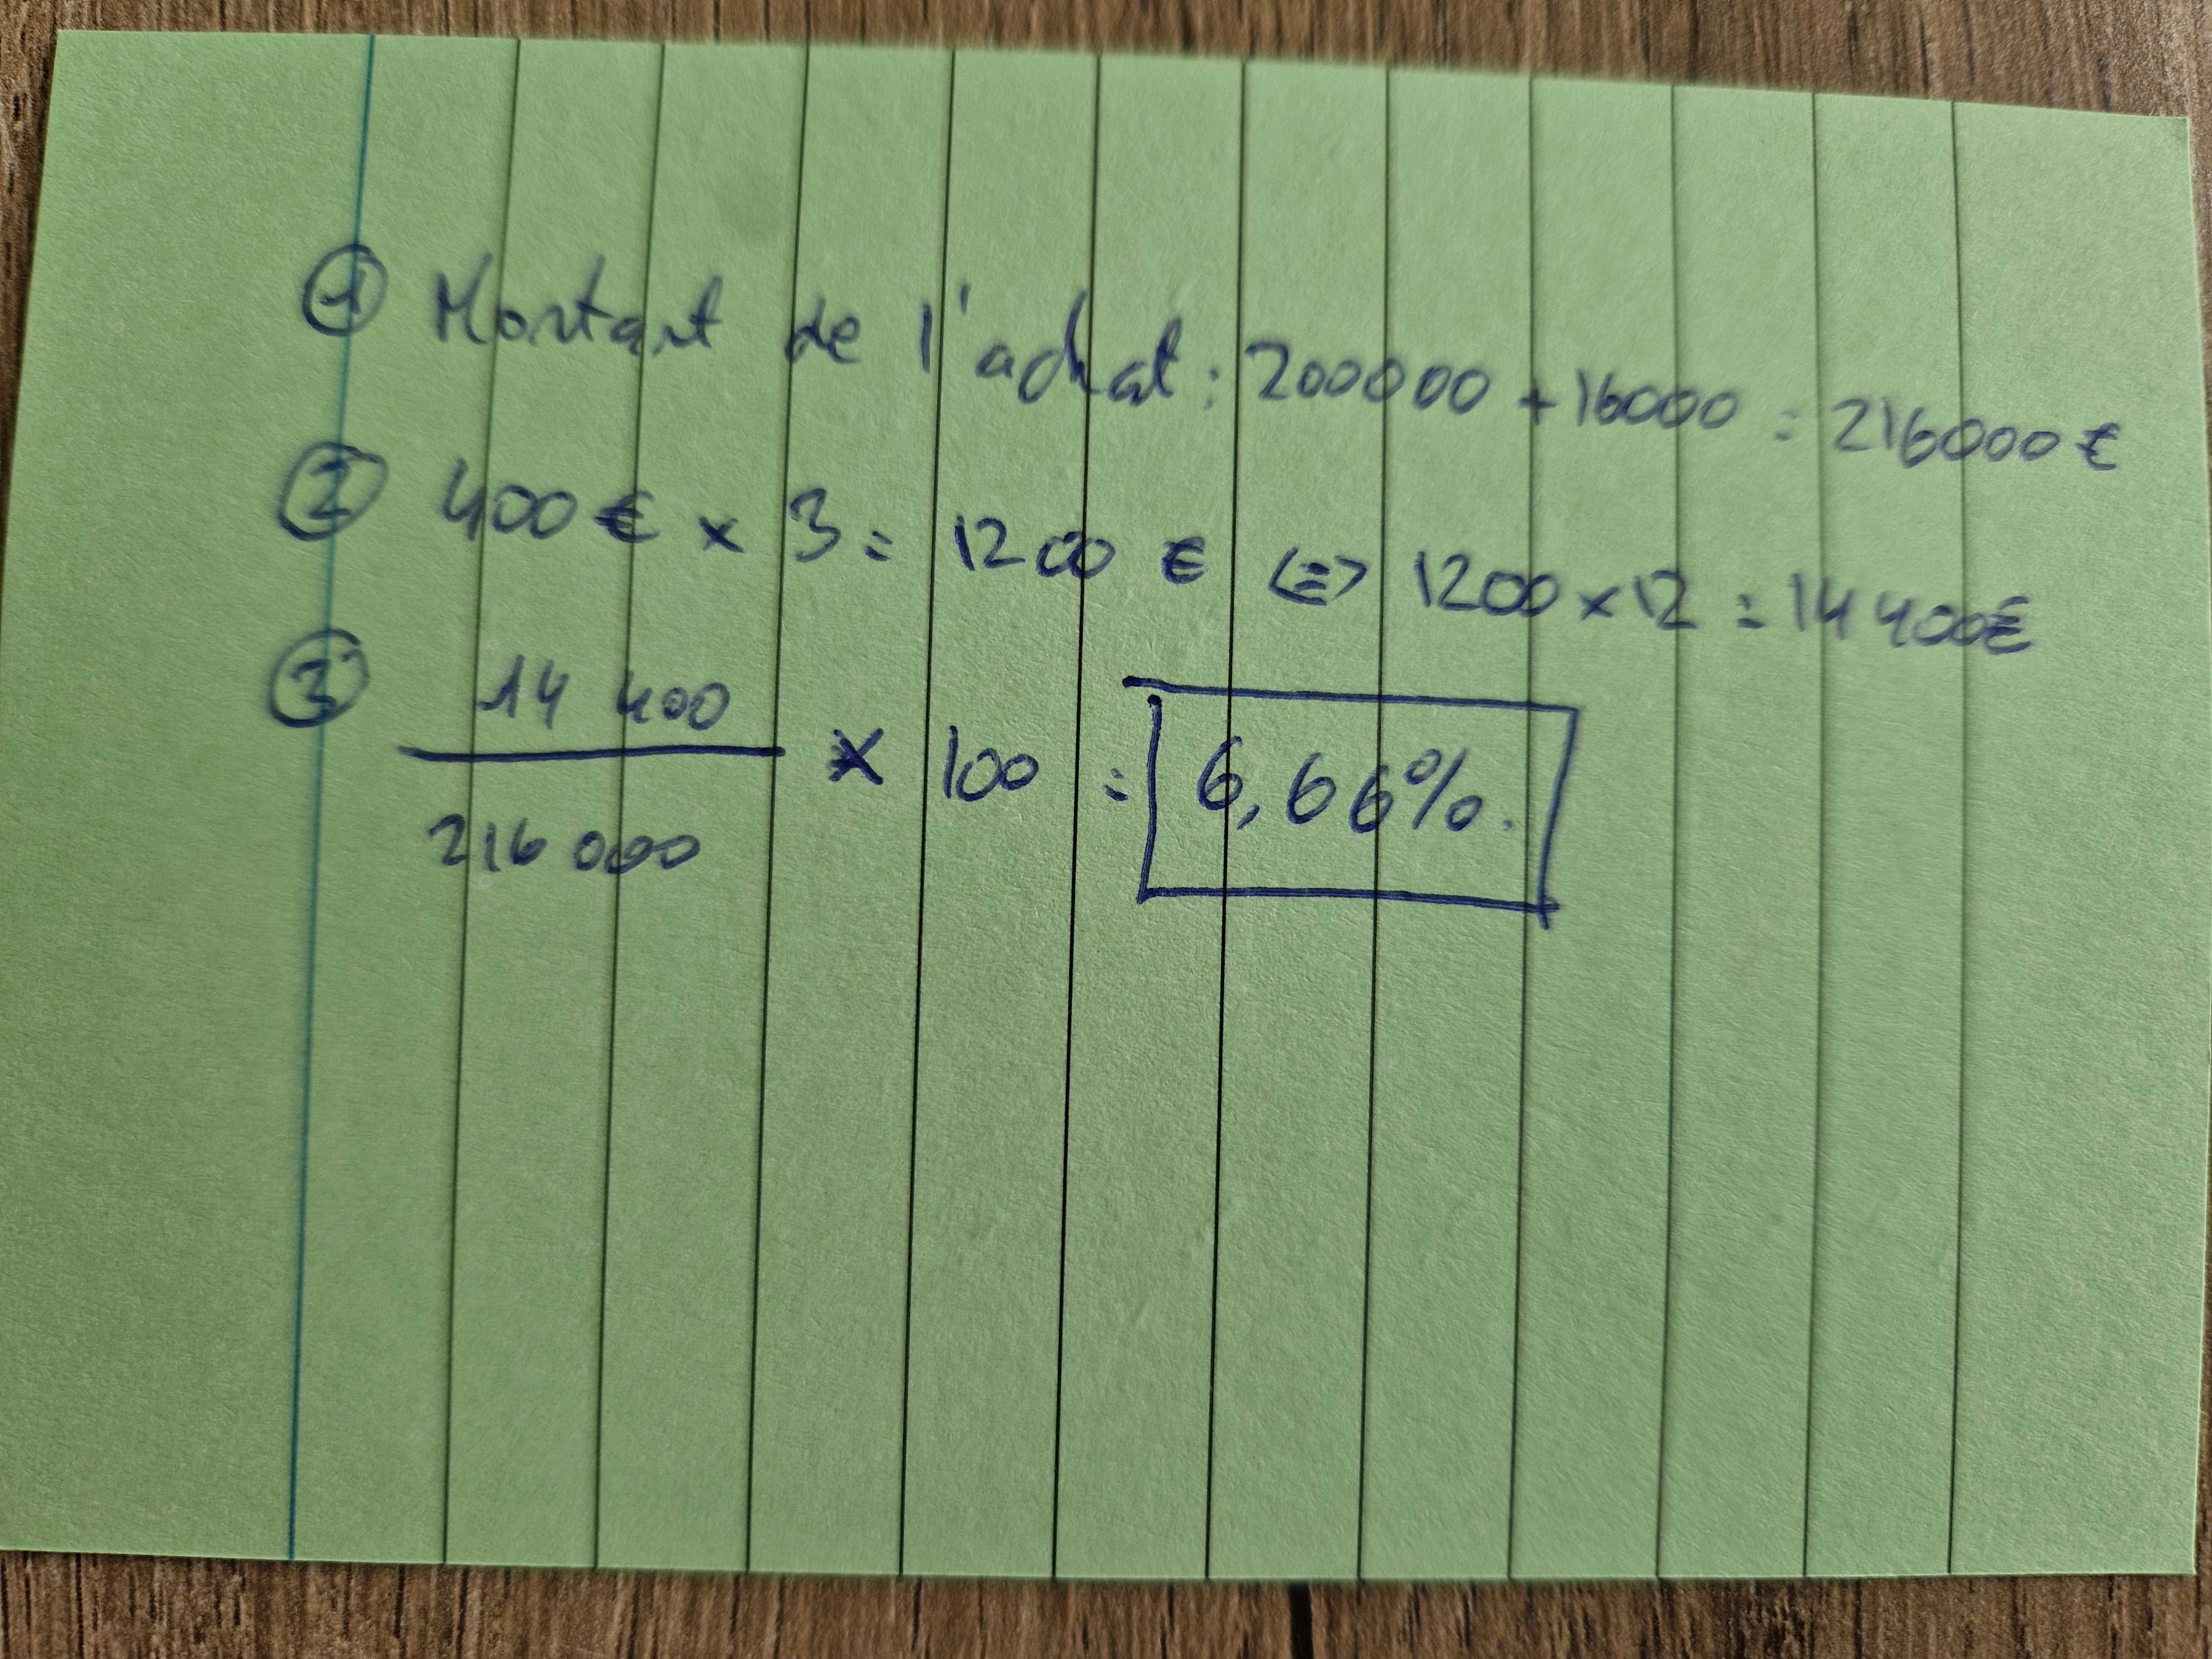 ① Montant de l'achat : 200000 + 16000 = 216000 €
② 400 € x 3 = 1200 € <=> 1200 x 12 = 14 400 €
③ 14 400
x 100 = 6,66%.
216 000